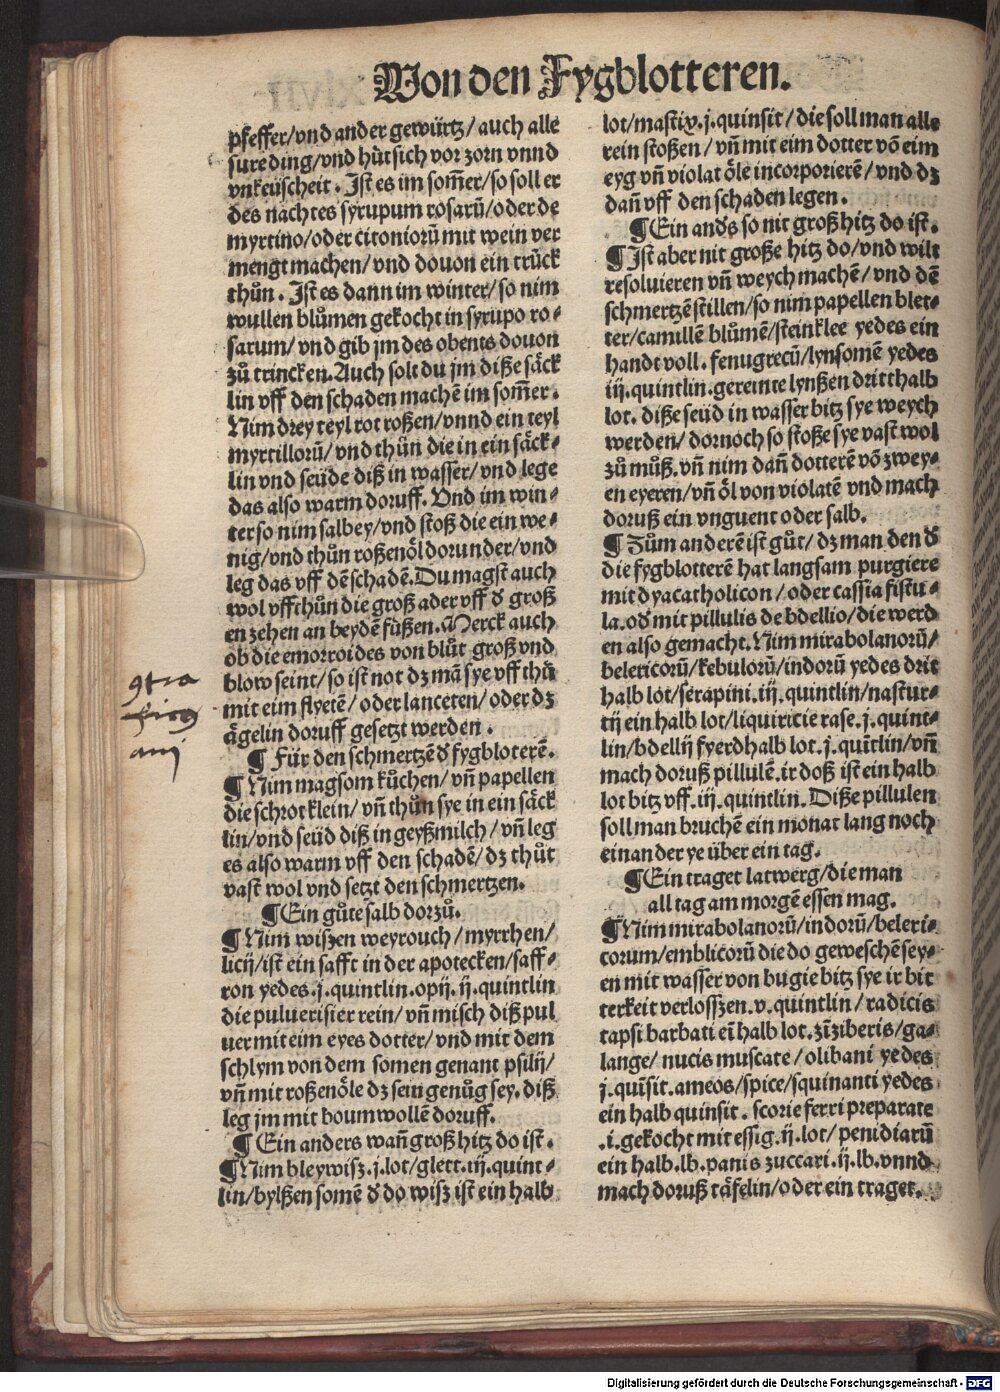 Von den Fygblotteren.
pfeffer/vnd ander gewürtz/auch alle
sure ding/vnd hüt sich vor zorn vnnd
vnkeüscheit. Ist es im som̃er/so soll er
des nachtes syrupum rosarū/oder de
myrtino/oder citoniorū mit wein ver
mengt machen/vnd douon ein trůck
thůn. Ist es dann im winter/so nim
wullen blůmen gekocht in syrupo ro⸗
sarum/vnd gib jm des obents douon
zů trincken. Auch solt du jm diße säck
lin vff den schaden machē im som̃er.
Nim drey teyl rot roßen/vnnd ein teyl
myrtillorū/vnd thůn die in ein säck⸗
lin vnd seüde diß in wasser/vnd lege
das also warm doruff. Vnd im win⸗
ter so nim salbey/vnd stoß die ein we⸗
nig/vnd thůn roßenöl dorunder/vnd
leg das vff dē schadē. Du magst auch
wol vffthůn die groß ader vff d̕ groß
en zehen an beydē fůßen. Merck auch
ob die emorroides von blůt groß vnd
blow seint/so ist not dz mā sye vff thů
mit eim flyetē/oder lanceten/oder dz
ägelin doruff gesetzt werden.
¶ Für den schmertzē d̕ fygbloterē.
¶ Nim magsom kůchen/vn̄ papellen
die schrot klein/vn̄ thůn sye in ein säck
lin/vnd seüd diß in geyßmilch/vn̄ leg
es also warm vff den schadē/dz thůt
vast wol vnd setzt den schmertzen.
¶ Ein gůte salb dorzů.
¶ Nim wiszen weyrouch/myrrhen/
licij/ist ein safft in der apotecken/saff⸗
ron yedes.j.quintlin.opij.ij.quintlin
die puluerisier rein/vn̄ misch diß pul
uer mit eim eyes dotter/vnd mit dem
schlym von dem somen genant psilij/
vn̄ mit roßenöle dz sein genůg sey. diß
leg jm mit boumwollē doruff.
¶ Ein anders wañ groß hitz do ist.
¶ Nim bleywisz.j.lot/glett.iij.quint⸗
lin/bylßen somē d̕ do wisz ist ein halb
lot/mastix.j.quinsit/die soll man alle
rein stoßen/vn̄ mit eim dotter vō eim
eyg vn̄ violat öle incorporierē/vnd dz
dañ vff den schaden legen.
¶ Ein and̕s so nit groß hitz do ist.
¶ Ist aber nit große hitz do/vnd wilt
resoluieren vn̄ weych machē/vnd dē
schmertzē stillen/so nim papellen blet⸗
ter/camillē blůmē/steinklee yedes ein
handt voll. fenugrecū/lynsomē yedes
iij.quintlin.gereinte lynßen dritthalb
lot. diße seüd in wasser bitz sye weych
werden/dornoch so stoße sye vast wol
zů můß. vn̄ nim dañ dotterē vō zwey⸗
en eyeren/vn̄ öl von violatē vnd mach
doruß ein vnguent oder salb.
¶ Zům anderē ist gůt/dz man den d̕
die fygblotterē hat langsam purgiere
mit dyacatholicon/oder cassia fistu⸗
la. od̕ mit pillulis de bdellio/die werd
en also gemacht. Nim mirabolanorū/
belericorū/kebulorū/indorū yedes drit
halb lot/serapini.iij.quintlin/nastur⸗
tij ein halb lot/liquiricie rase.j.quint⸗
lin/bdellij fyerdhalb lot.j.quītlin/vn̄
mach doruß pillulē. ir doß ist ein halb
lot bitz vff.iij.quintlin. Diße pillulen
soll man bruchē ein monat lang noch
einander ye über ein tag.
¶ Ein traget latwerg/die man
all tag am morgē essen mag.
¶ Nim mirabolanorū/indorū/beleri⸗
corum/emblicorū die do geweschē sey⸗
en mit wasser von bugie bitz sye ir bit
terkeit verlosszen.v.quintlin/radicis
tapsi barbati eī halb lot. zīziberis/ga⸗
lange/nucis muscate/olibani yedes
j.quīsit.ameos/spice/squinanti yedes
ein halb quinsit. scorie ferri preparate
.i.gekocht mit essig.ij.lot/penidiarū
ein halb.lb.panis zuccari.ij.lb.vnnd
mach doruß täfelin/oder ein traget.
9tra
ficus
ani
Digitalisierung gefördert durch die Deutsche Forschungsgemeinschaft - DFG